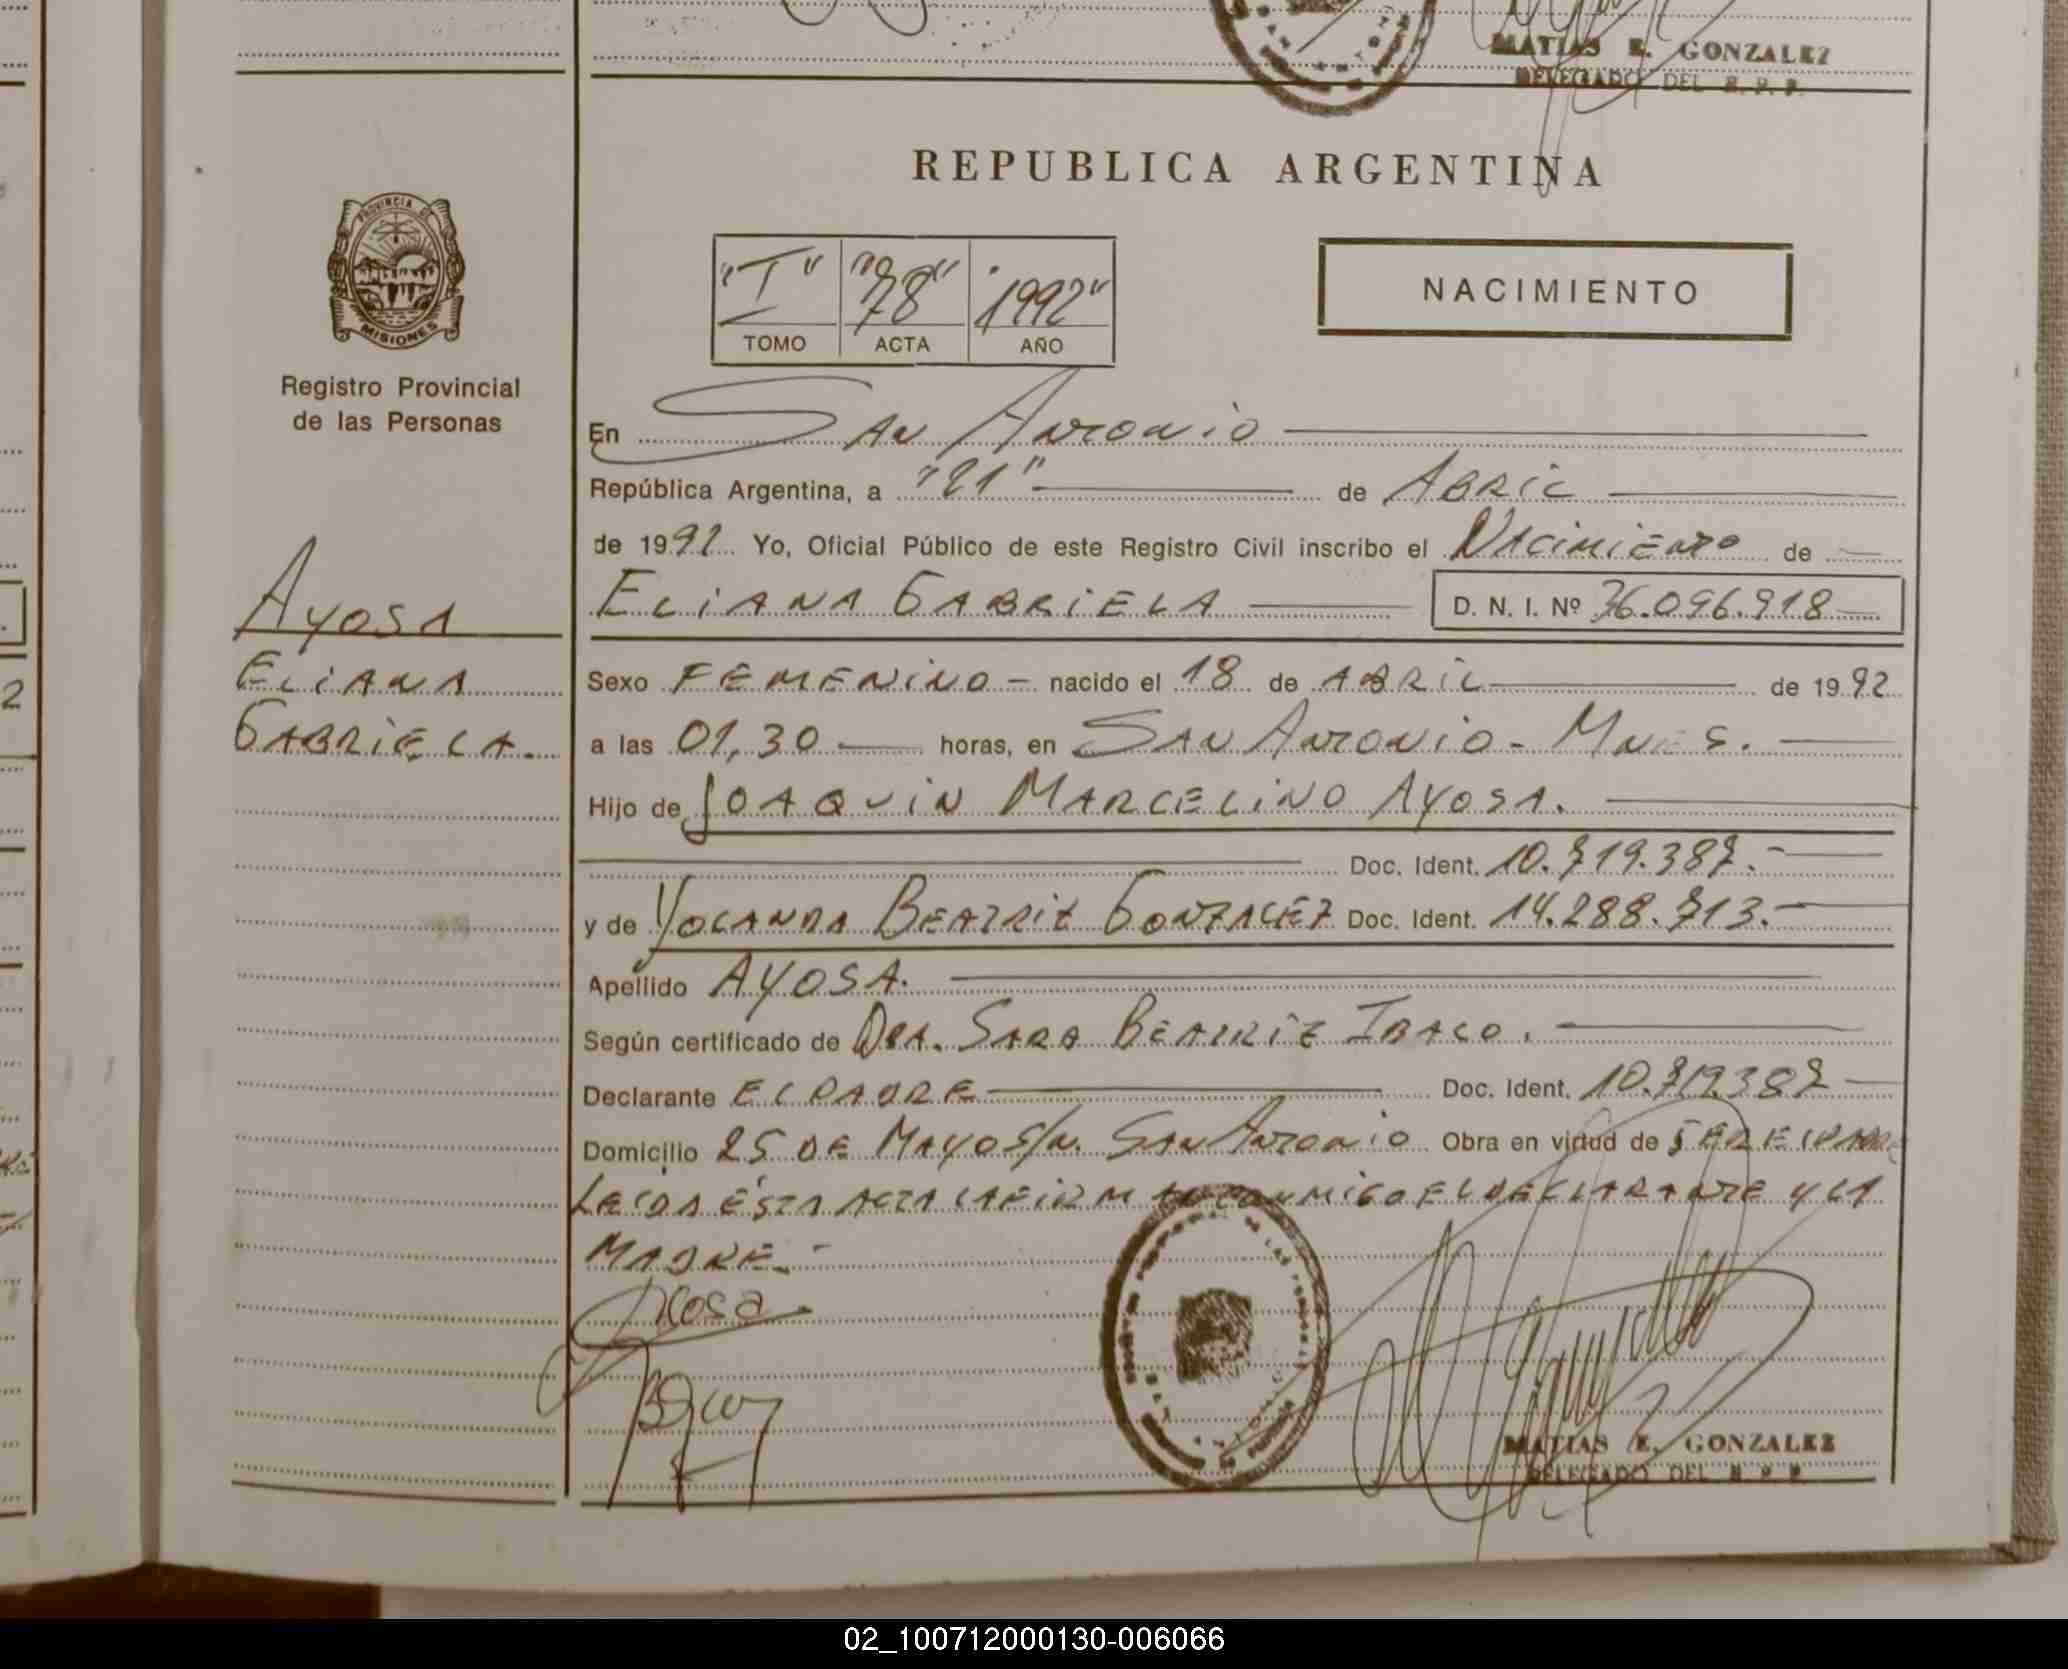 MATIAS E. GONZALEZ
DELEGADO DEL R. P. P.
REPUBLICA ARGENTINA
PROVINCIA DE
MISIONES
Registro Provincial
de las Personas
"I" "78" "1992"
TOMO ACTA AÑO
NACIMIENTO
En San Antonio
República Argentina, a "21" de Abril
de 1992 Yo, Oficial Público de este Registro Civil inscribo el Nacimiento de
Eliana Gabriela D. N. I. Nº 36.096.918
Ayosa
Eliana
Gabriela.
Sexo Femenino - nacido el 18 de Abril de 1992
a las 01,30 horas, en San Antonio - Mnes.
Hijo de Joaquin Marcelino Ayosa.
Doc. Ident. 10.719.387.-
y de Yolanda Beatriz Gonzalez Doc. Ident. 14.288.713.-
Apellido Ayosa.
Según certificado de Dra. Sara Beatriz Ibalo.
Declarante El Padre Doc. Ident. 10.719.387
Domicilio 25 de Mayo s/n. San Antonio Obra en virtud de
Leida ésta acta la firman conmigo el declarante y la
Madre.-
MATIAS E. GONZALEZ
DELEGADO DEL R. P. P.
02_100712000130-006066